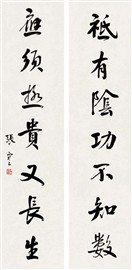 祗有陰功不知數
應須極貴又長生